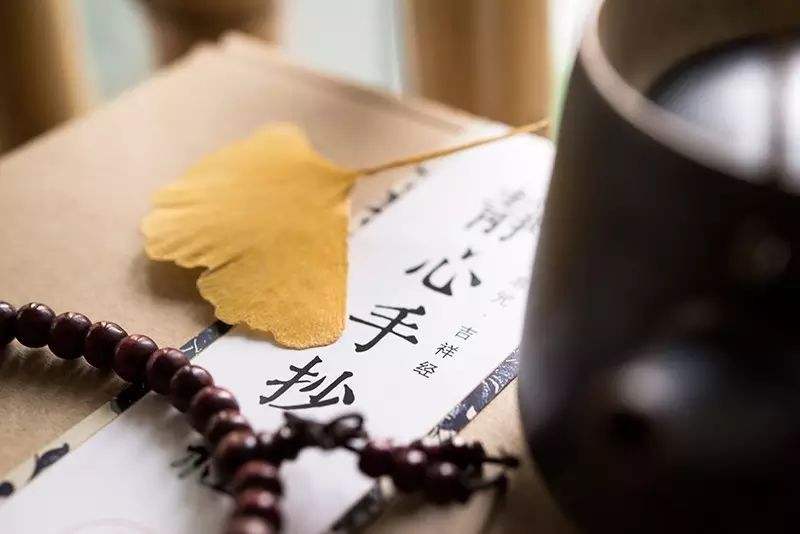 静心手抄
吉祥经